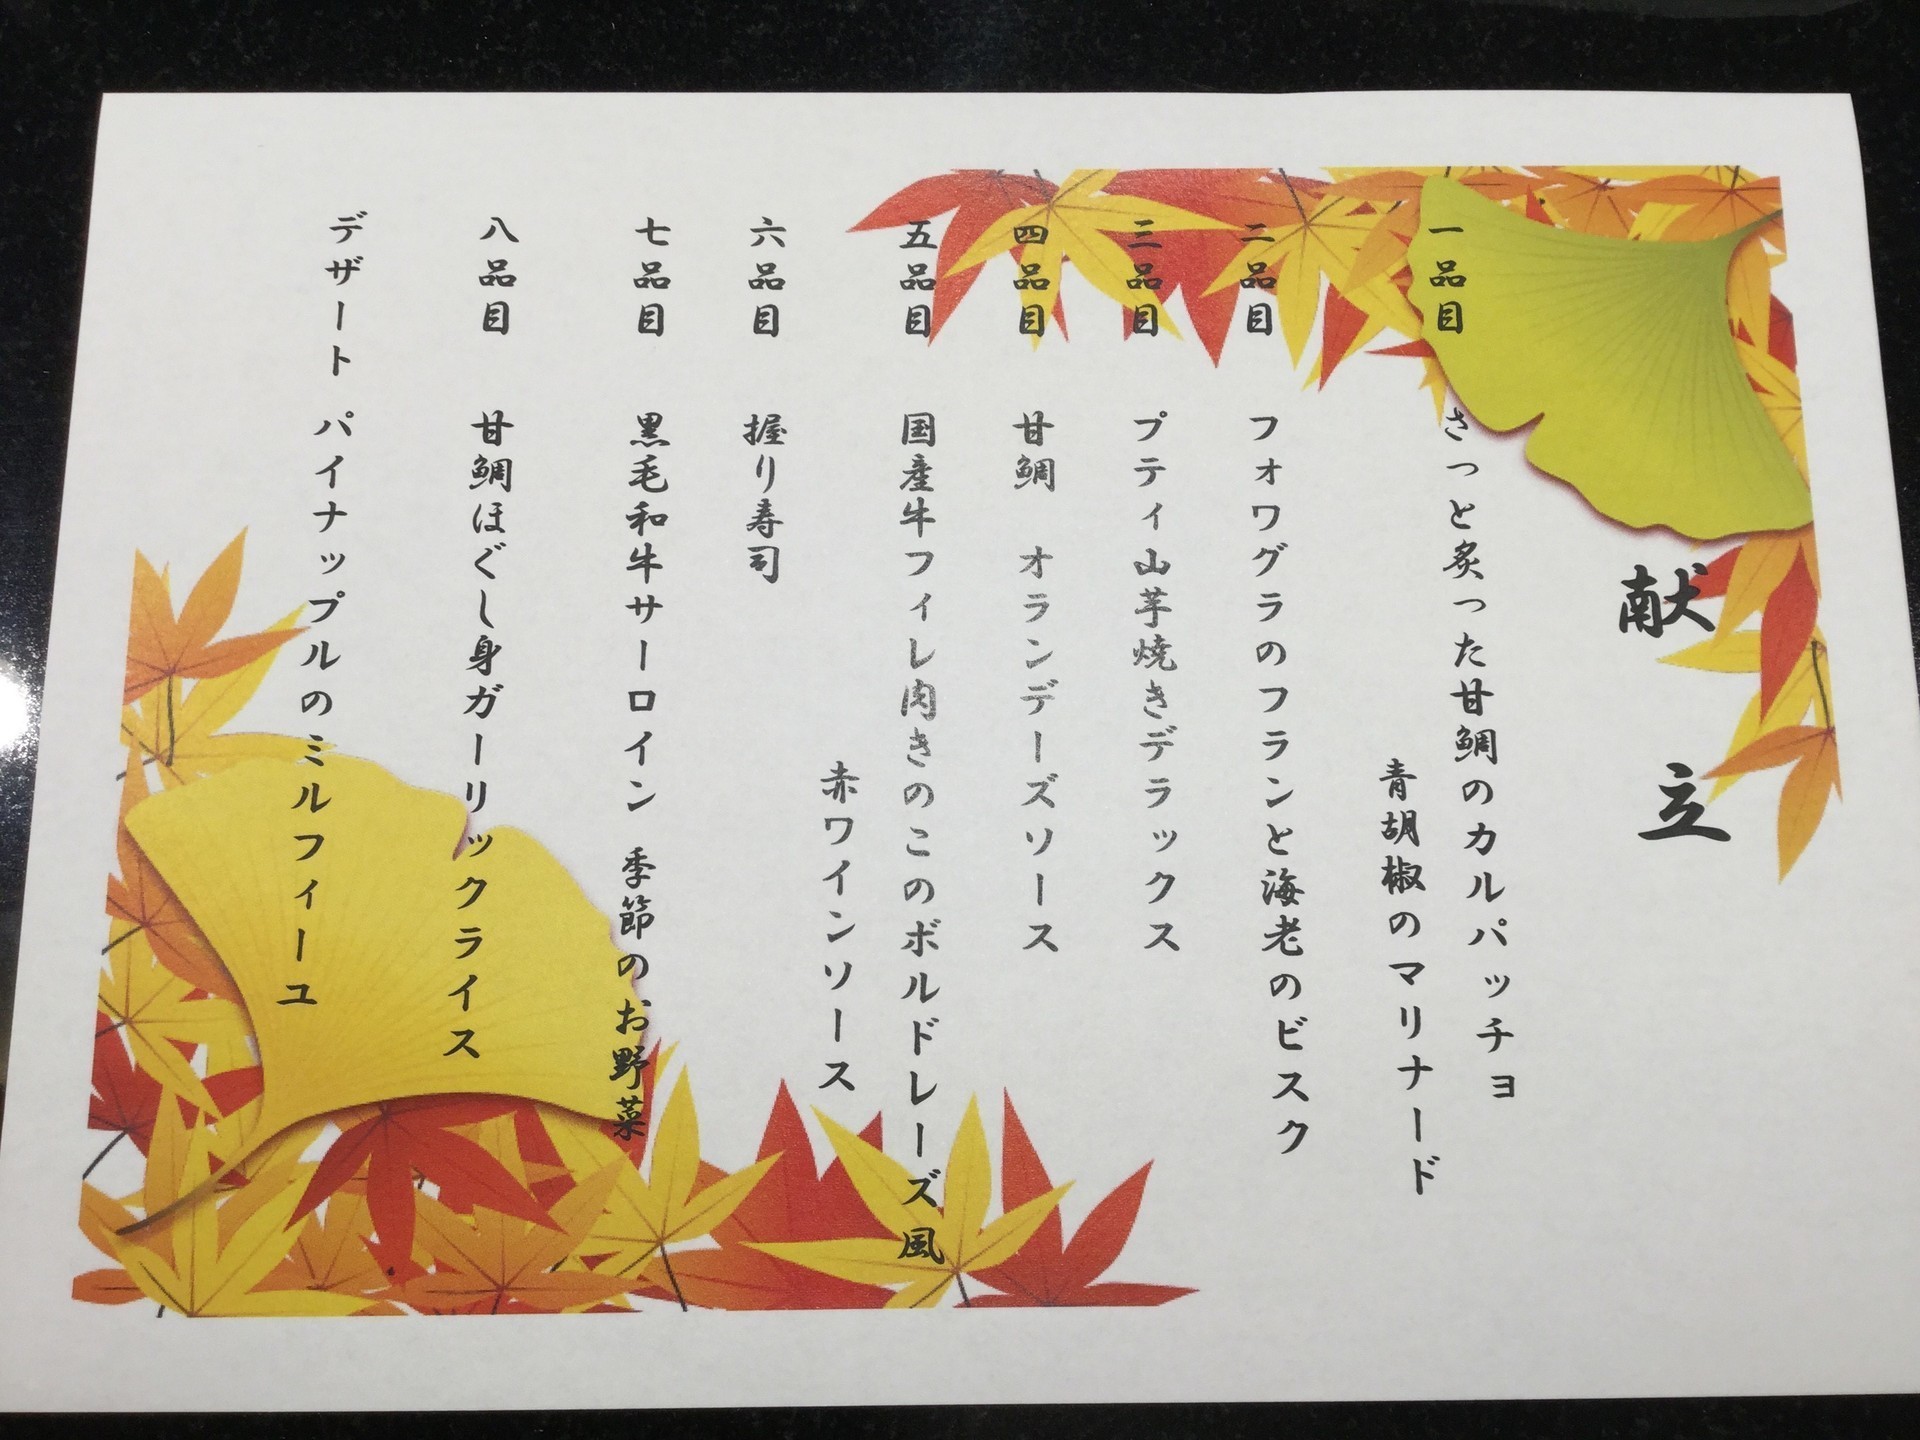 献立
一品目 さっと炙った甘鯛のカルパッチョ
青胡椒のマリナード
二品目 フォワグラのフランと海老のビスク
三品目 プティ山芋焼きデラックス
四品目 甘鯛 オランデーズソース
五品目 国産牛フィレ肉きのこのボルドレーズ風
赤ワインソース
六品目 握り寿司
七品目 黒毛和牛サーロイン 季節のお野菜
八品目 甘鯛ほぐし身ガーリックライス
デザート パイナップルのミルフィーユ